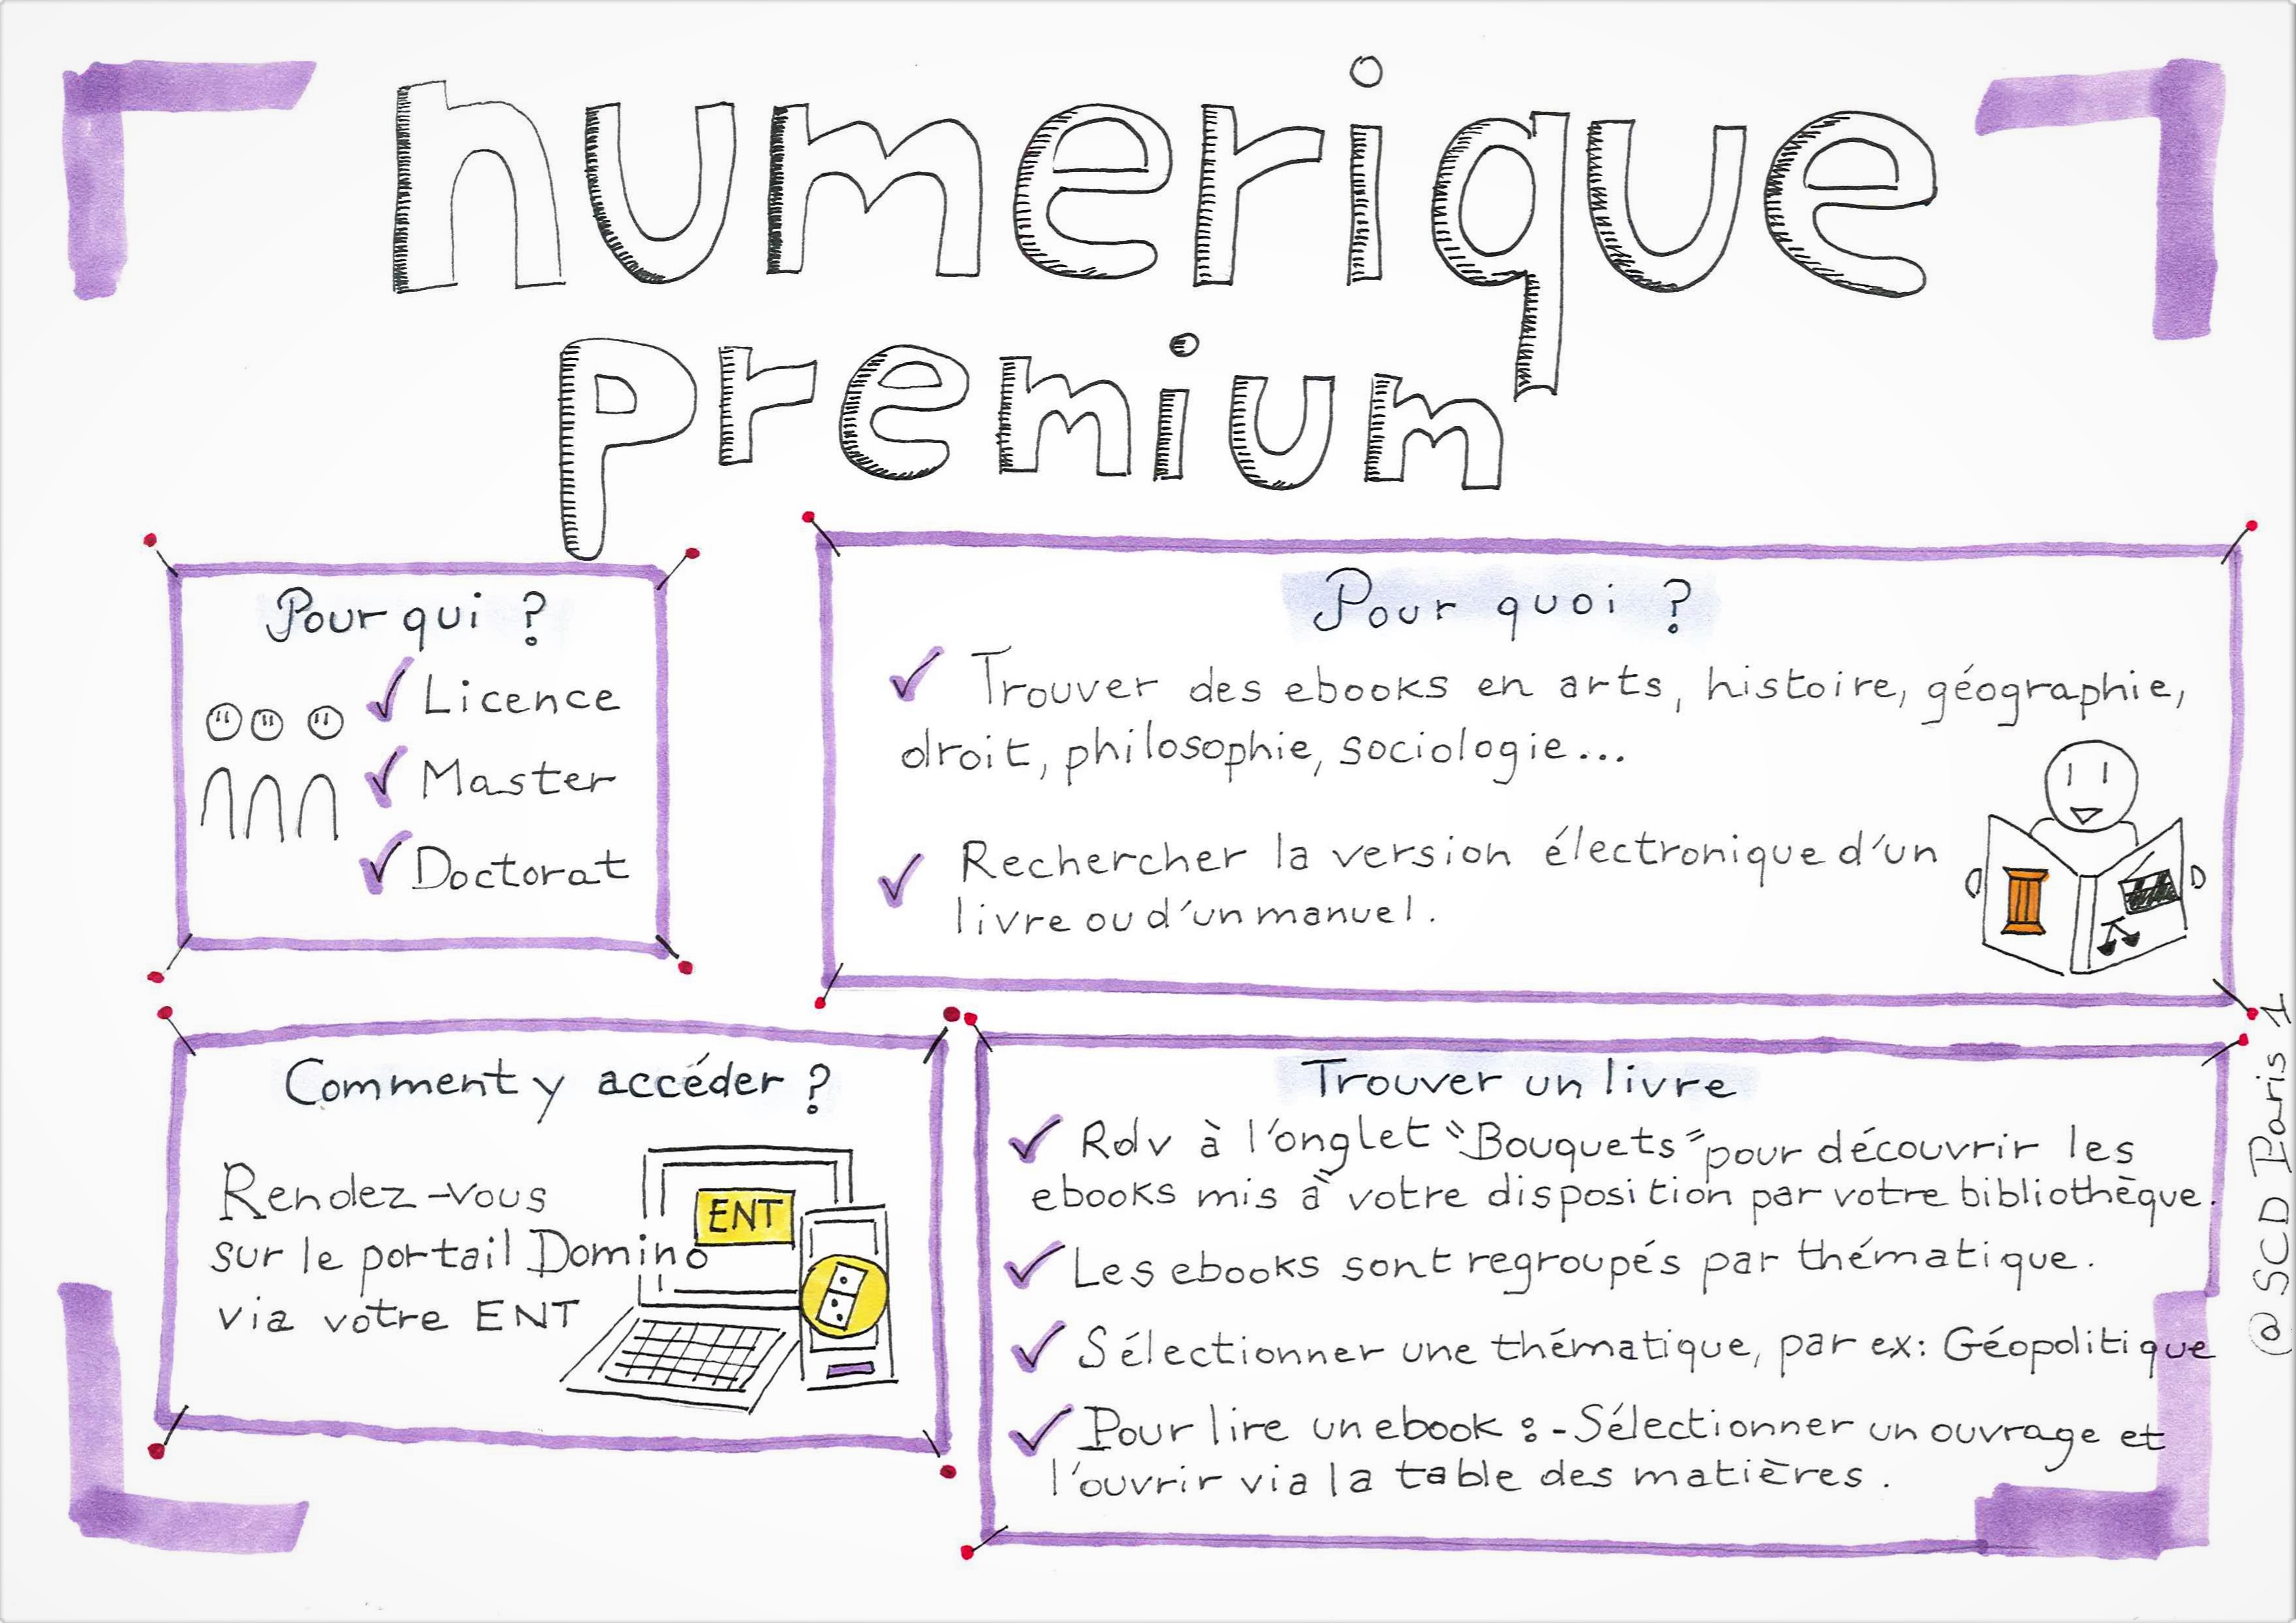 numerique
premium
Pour qui ?
Licence
Master
Doctorat
Pour quoi ?
Trouver des ebooks en arts, histoire, géographie,
droit, philosophie, sociologie...
Rechercher la version électronique d'un
livre ou d'un manuel.
Comment y accéder ?
Rendez-vous
sur le portail Domino
via votre ENT
ENT
Trouver un livre
Rdv à l'onglet "Bouquets" pour découvrir les
ebooks mis à votre disposition par votre bibliothèque.
Les ebooks sont regroupés par thématique.
Sélectionner une thématique, par ex: Géopolitique
Pour lire un ebook : - Sélectionner un ouvrage et
l'ouvrir via la table des matières.
@SCD Paris 1